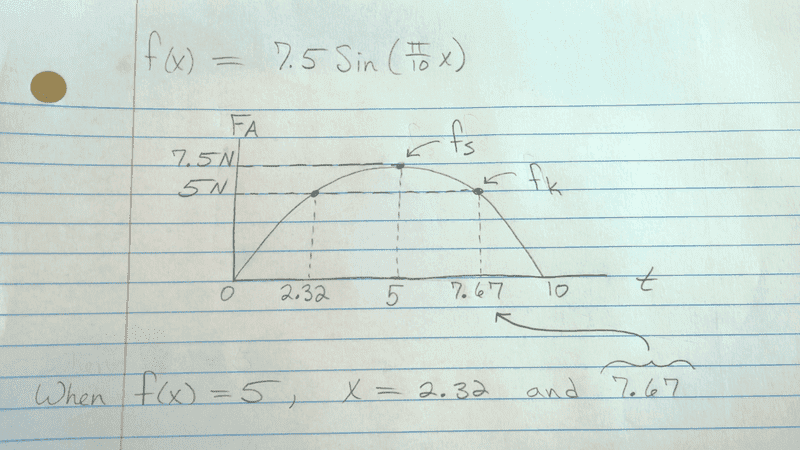 f(x) = 7.5 Sin (π/10 x)
FA
fs
7.5N
5N
fk
0 2.32 5 7.67 10 t
When f(x) = 5, x = 2.32 and 7.67